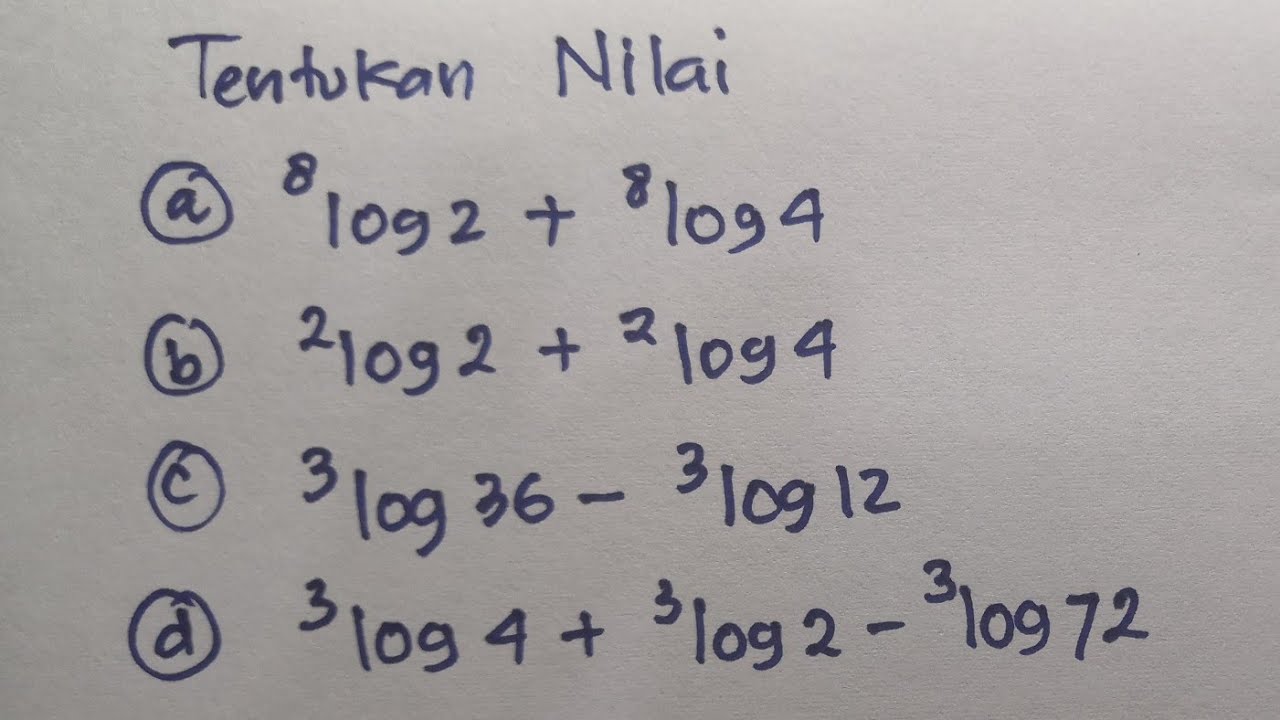 Tentukan Nilai
ⓐ ⁸log 2 + ⁸log 4
ⓑ ²log 2 + ²log 4
ⓒ ³log 36 - ³log 12
ⓓ ³log 4 + ³log 2 - ³log 72